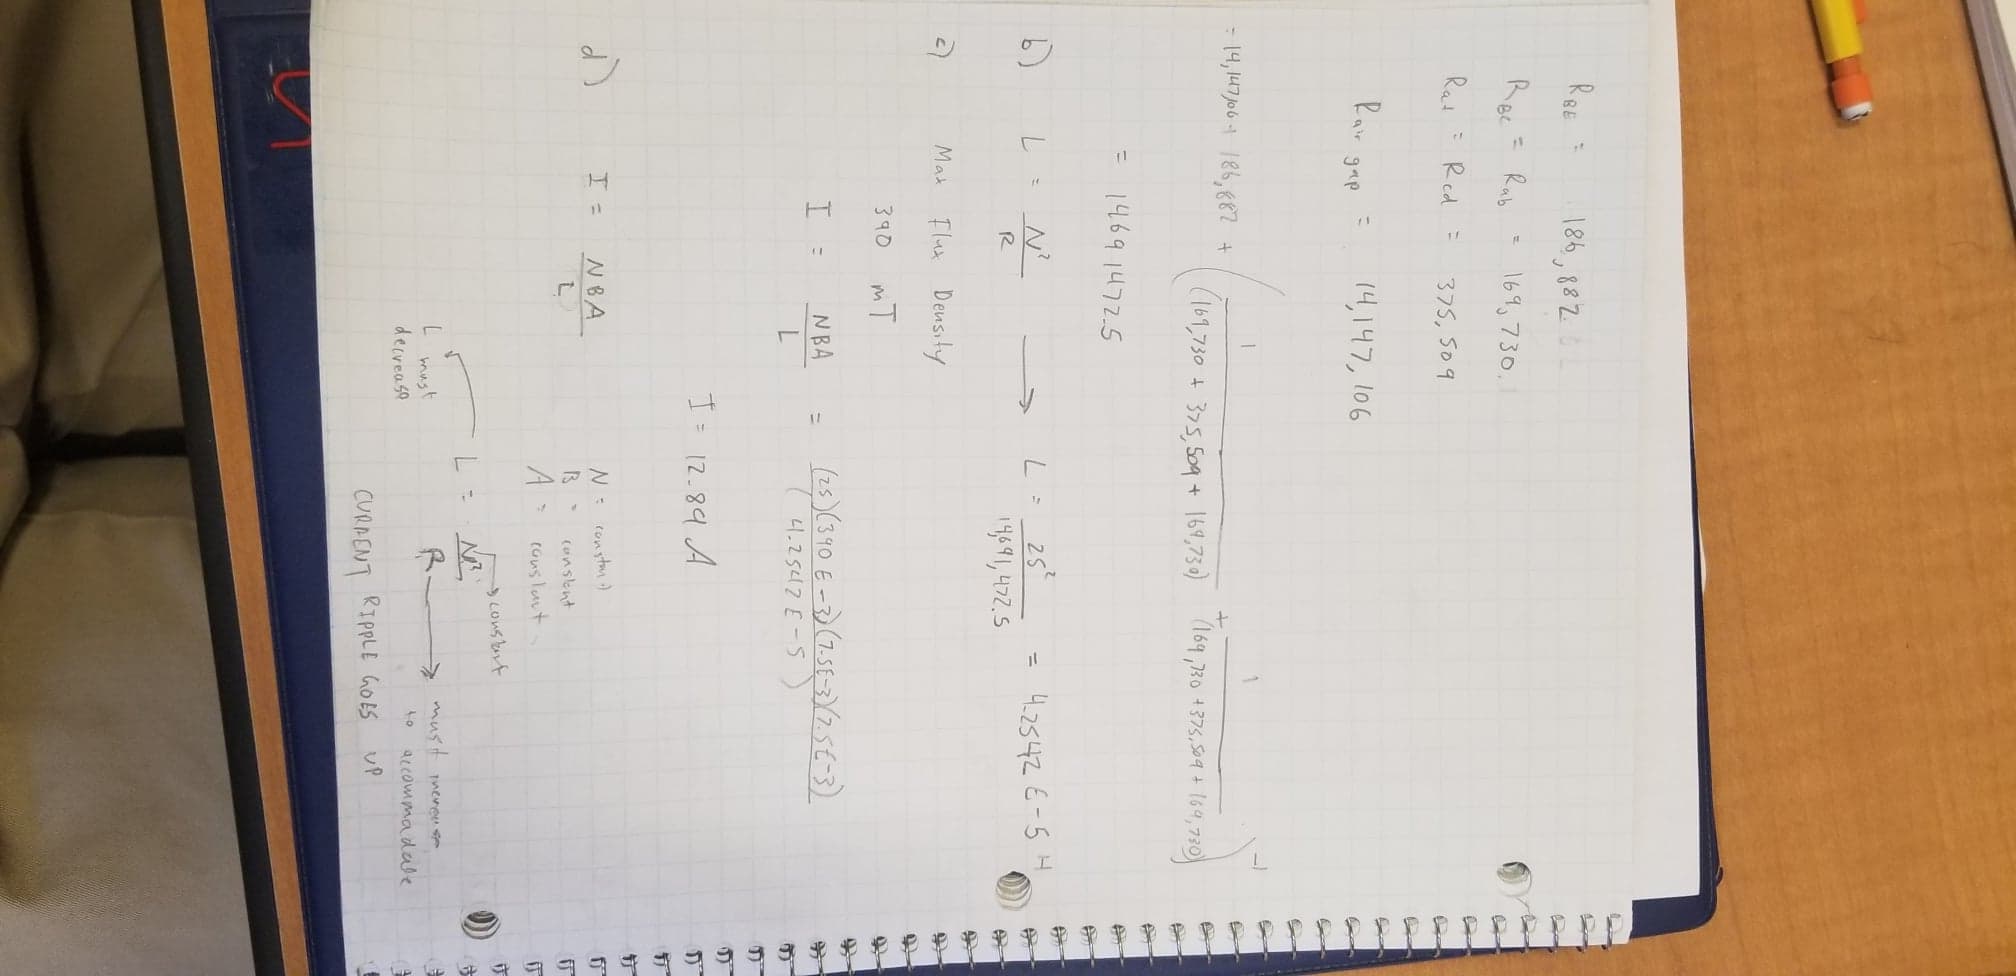 R_BE = 186,882
R_BC = R_ab = 169,730.
R_ad = R_cd = 375,509
R_air gap = 14,147,106
= 14,147,106 + 186,882 + ( 1/(169,730 + 375,509 + 169,730) + 1/(169,730 + 375,509 + 169,730) )^-1
= 14691472.5
b) L = N²/R → L = 25²/14,691,472.5 = 4.2542 E-5 H
c) Max Flux Density
390 mT
I = NBA/L = (25)(390 E-3)(7.5E-3)(7.5E-3)/(4.2542 E-5)
I = 12.89 A
d) I = NBA/L
N = constant
B = constant
A = constant
→ constant
L = N²/R
L must decrease
→ must increase
to accommadate
CURRENT RIPPLE GOES UP